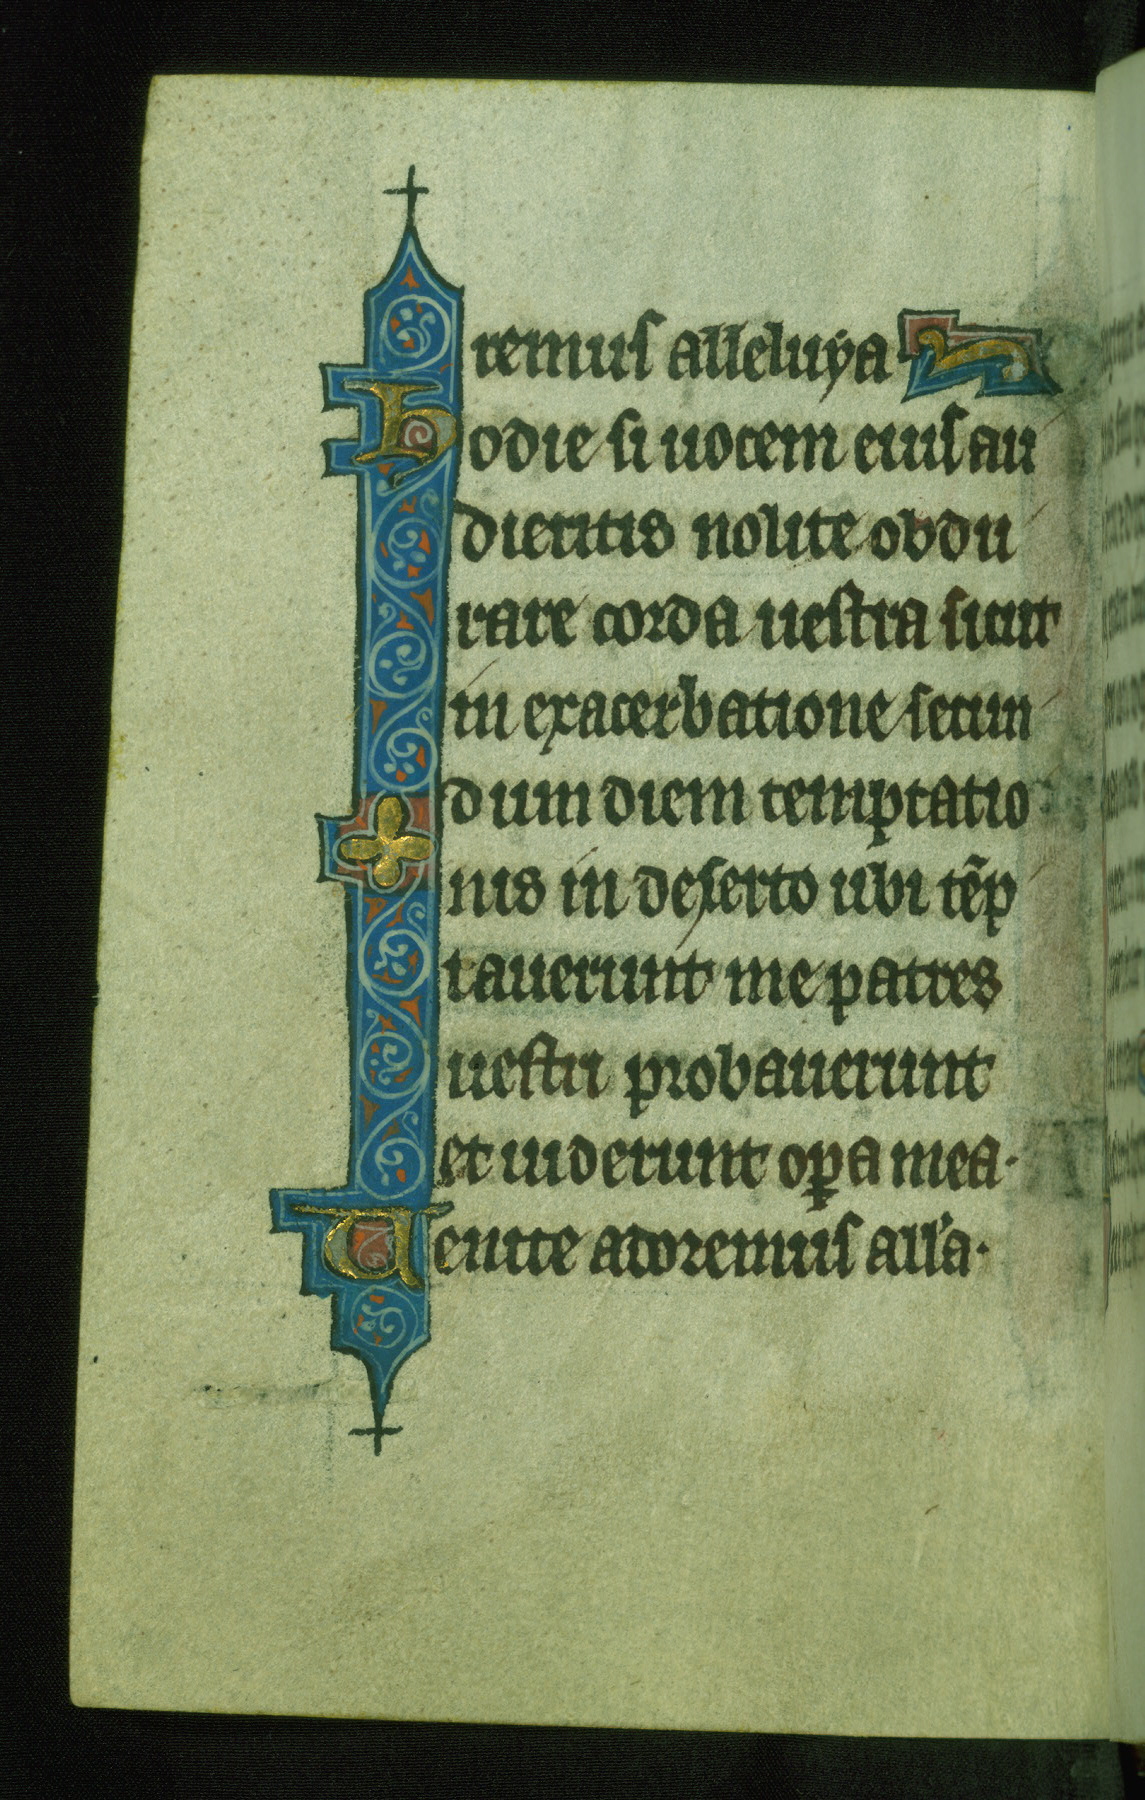 remus alleluya
Hodie si uocem eius au
dieritis nolite obdu
rare corda uestra sicut
in exacerbatione secun
dum diem temptatio
nis in deserto ubi tēp
tauerunt me patres
uestri probauerunt
et uiderunt oꝑa mea·
Uenite adoremus all'a·